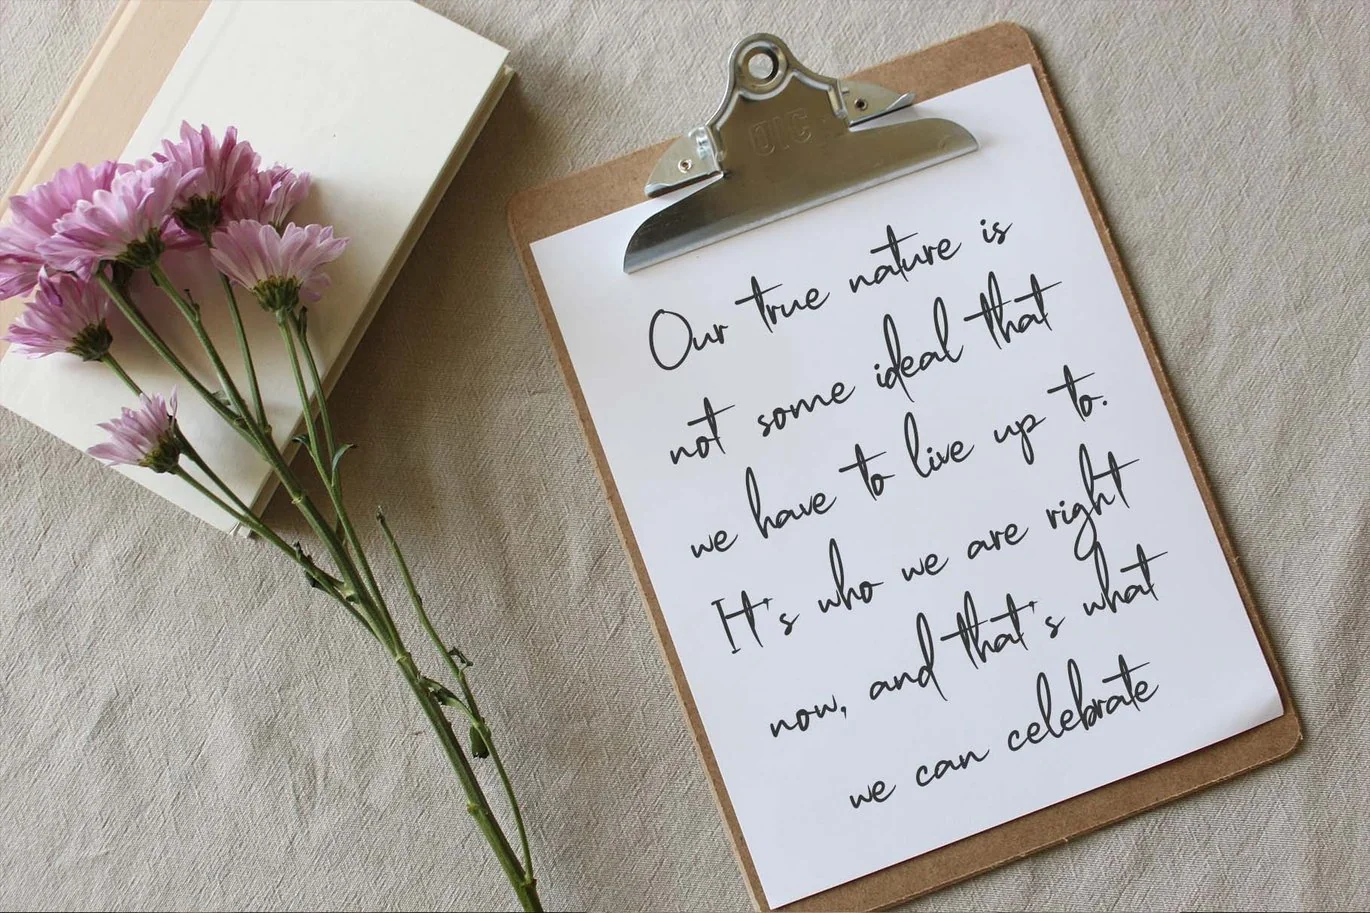 OIC
Our true nature is
not some ideal that
we have to live up to.
It's who we are right
now, and that's what
we can celebrate